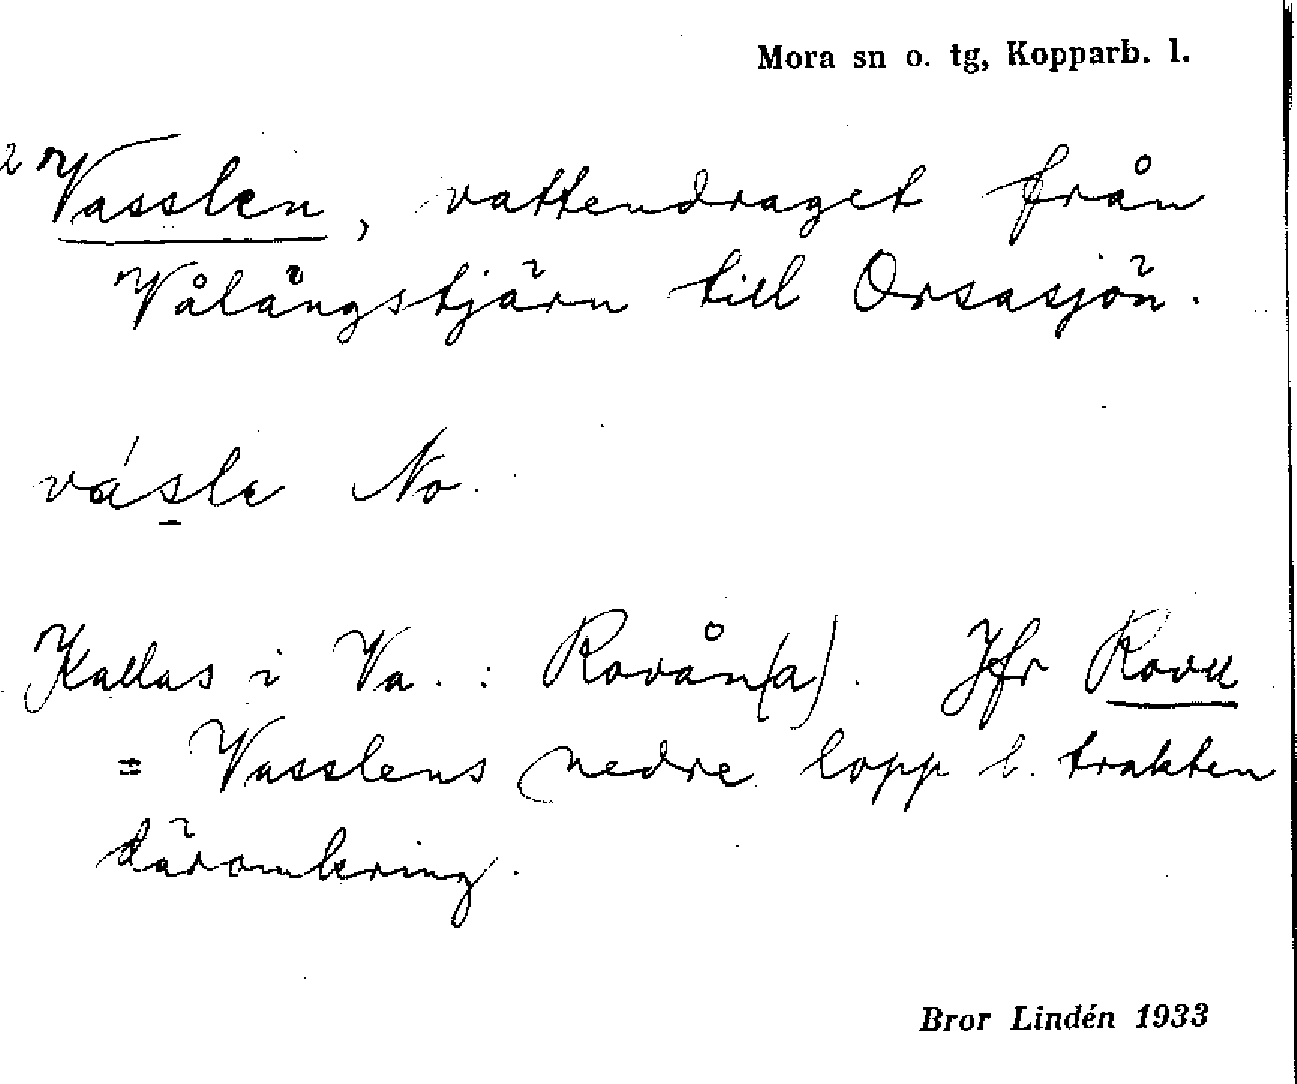 Mora sn o. tg, Kopparb. l.
2 Vasslen, vattendraget från
Vålångstjärn till Orsasjön.
vásle No.
Kallas i Va.: Rovån(a). Jfr Rovu
= Vasslens nedre lopp l. trakten
däromkring.
Bror Lindén 1933